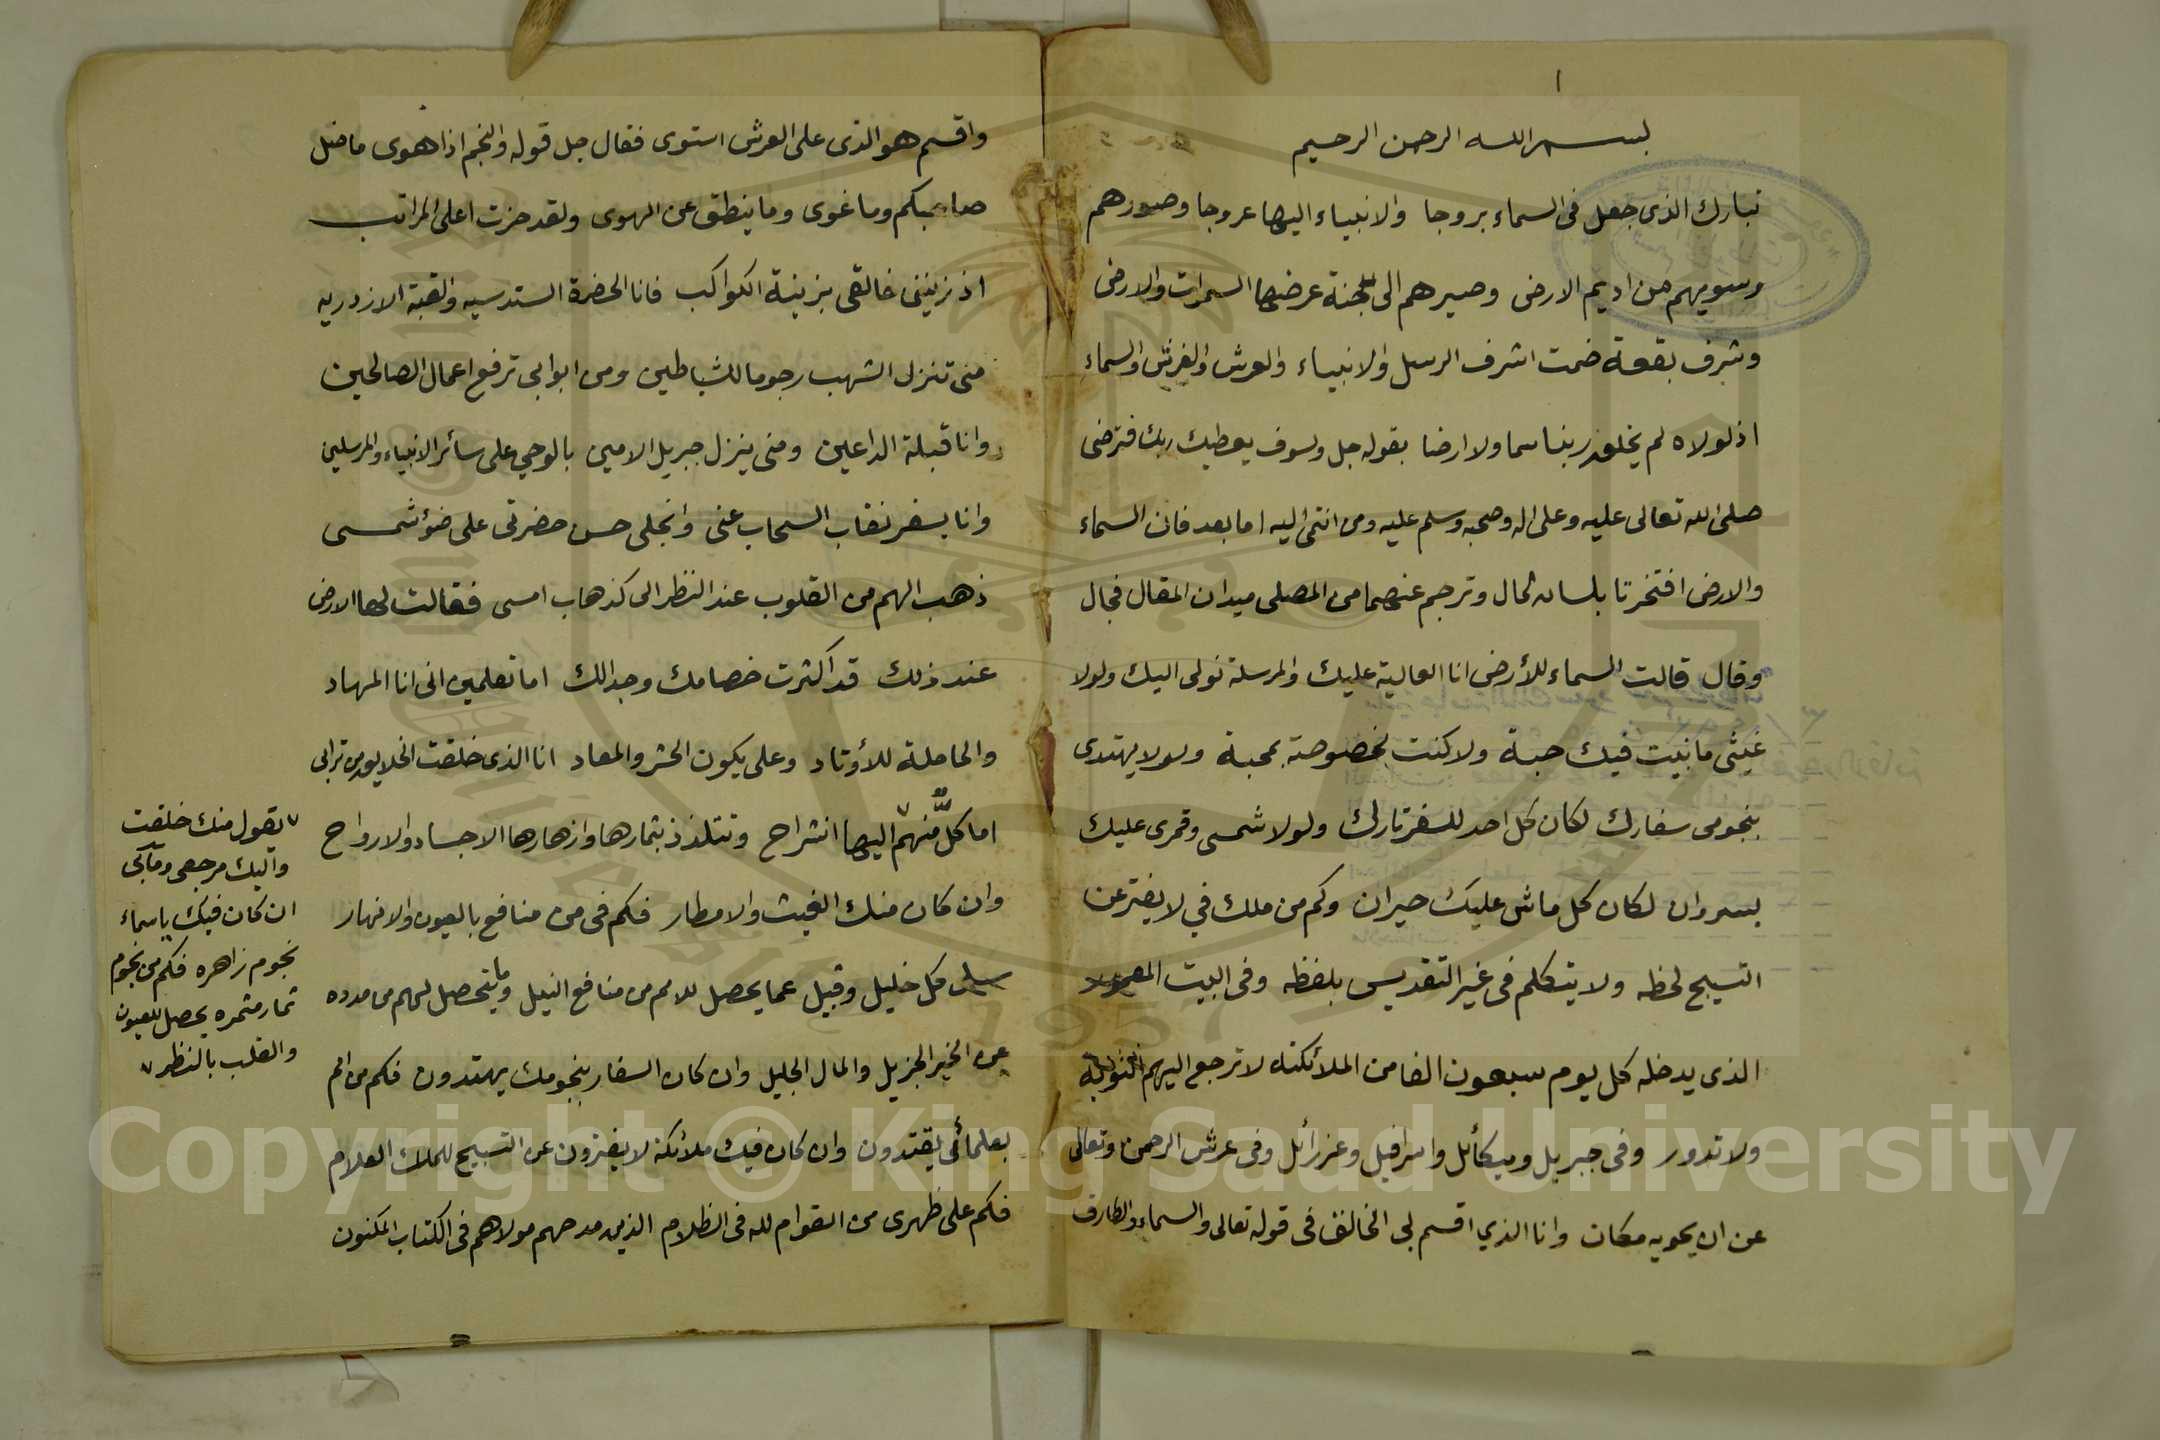 ١
بسم الله الرحمن الرحيم
تبارك الذى جعل فى السماء بروجا والانبياء اليها عروجا وصورهم
وسويهم من اديم الارض وصيرهم الى جنة عرضها السموات والارض
وشرف بقعة ضمت اشرف الرسل والانبياء والعرش والفرش والسماء
اذ لولاه لم يخلق ربنا سما ولا ارضا بقوله جل ولسوف يعطيك ربك فترضى
صلى الله تعالى عليه وعلى اله وصحبه وسلم عليه ومن انتمى اليه اما بعد فان السماء
والارض افتخرتا بلسان حال وترجم عنهما من المصلى ميدان المقال فجال
وقال قالت السماء للأرض انا العالية عليك والمرسلة نولى اليك ولولا
غيثى ما نبيت فيك حبة ولا كنت مخصوصة بمحبة ولولا يهتدى
بنجومى سفارك لكان كل احد للسفر تارك ولولا شمسى وقمرى عليك
يسروان لكان كل ماش عليك حيران وكم من ملك في لا يفتر عن
التسبيح لحظه ولا يتكلم فى غير التقديس بلفظه وفى البيت المعمور
الذى يدخله كل يوم سبعون الفا من الملائكته لا ترجع اليهم النوبة
ولا تدور وفى جبريل وميكائل واسرافيل وعزرائل وفى عرش الرحمن وتعالى
عن ان يحويه مكان وانا الذي اقسم بى الخالق فى قوله تعالى والسماء والطارق
واقسم هو الذى على العرش استوى فقال جل قوله والنجم اذا هوى ما ضل
صاحبكم وما غوى وما ينطق عن الهوى ولقد حزت اعلى المراتب
اذ زيننى خالقى بزينة الكواكب فانا الخضرة السندسيه والقبة الازورديه
منى تنزل الشهب رجوما للشياطين ومن ابوابى ترفع اعمال الصالحين
وانا قبلة الداعين ومنى ينزل جبريل الامين بالوحي على سائر الانبياء والمرسلين
وانا يسفر نقاب السحاب عنى وانجلى حسن حضرتى على ضوء شمسى
ذهب الهم من القلوب عند النظر الى كذهاب امسى فقالت لها الارض
عند ذلك قد اكثرت خصامك وجدالك اما تعلمين انى انا المهاد
والحاملة للأوتاد وعلى يكون الحشر والمعاد انا الذى خلقت الخلايق من ترابى
اما كل منهم اليها انشراح وتتلذذ بثمارها وازهارها الاجساد والارواح
وان كان منك الغيث والامطار فكم فى من منافع بالعيون والانهار
سلى كل خليل وقبيل عما يحصل للامم من منافع النيل وما يتحصل لهم من مدده
من الخير الجزيل والمال الجليل وان كان السفار بنجومك يهتدون فكم من امم
بعلمائى يقتدون وان كان فيك ملائكة لا يفترون عن التسبيح للملك العلام
فكم على ظهرى من القوام لله فى الظلام الذين مدحهم مولاهم فى الكتاب المكنون
يقول منك خلقت
واليك مرجعى ومآبى
ان كان فيك يا سماء
نجوم زاهره فكم من نجوم
ثمار مثمره يحصل للعيون
والقلب بالنظر
Copyright © King Saud University
1957